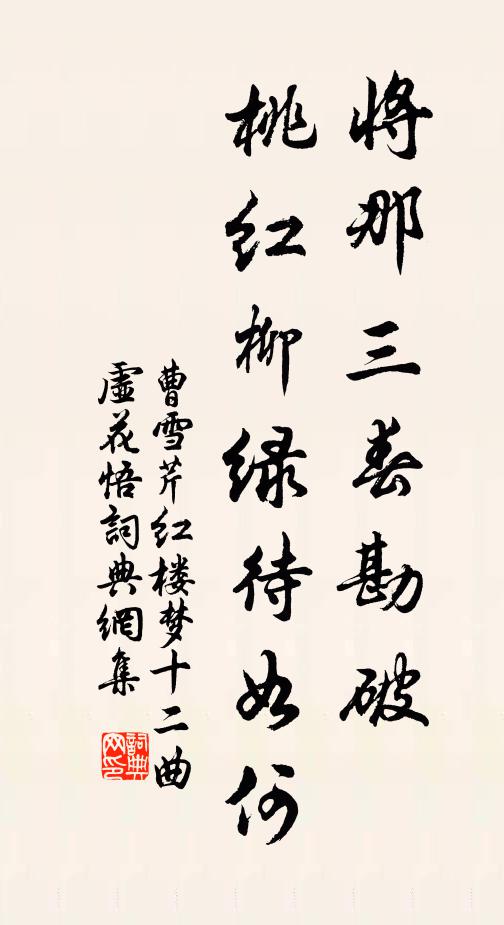 將那三春勘破
桃红柳绿待如何
曹雪芹红楼梦十二曲
虛花悟詞典網集
詞典网印